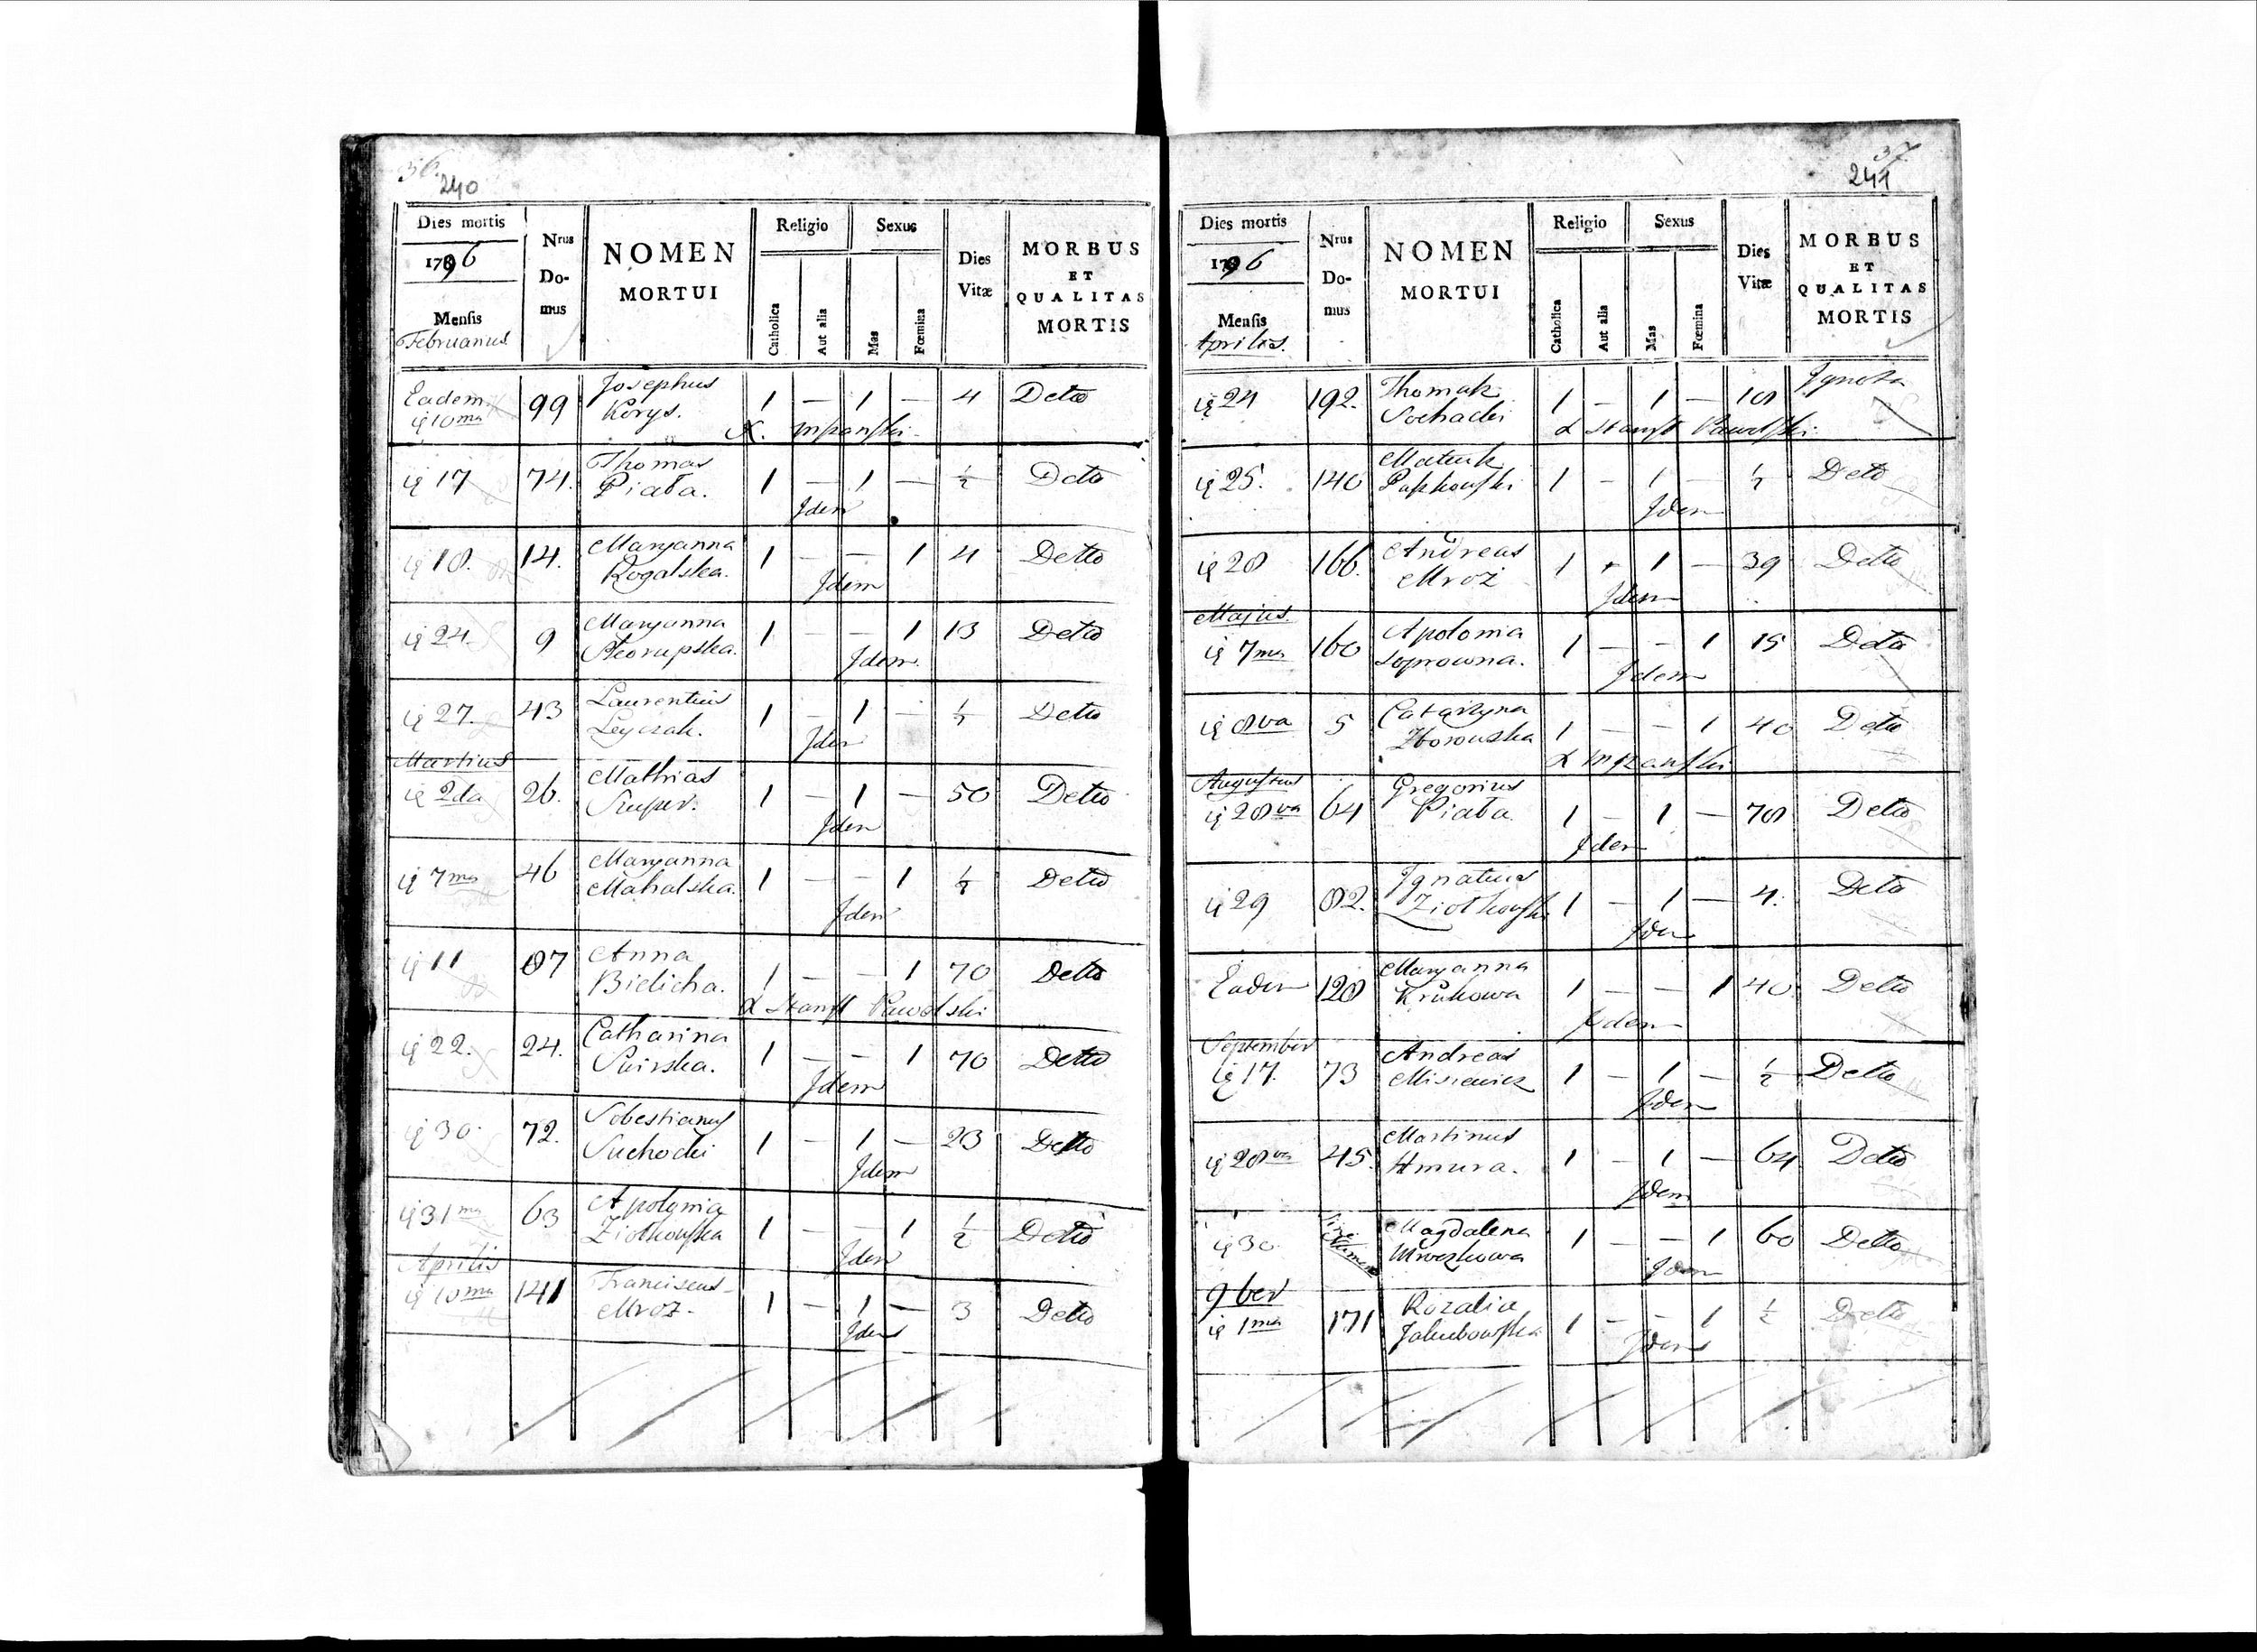 36.
240
Dies mortis
Nrus
Do-
mus
NOMEN
MORTUI
Religio
Sexus
Catholica
Aut alia
Mas
Fœmina
Dies
Vitæ
MORBUS
ET
QUALITAS
MORTIS
1796
Mensis
Februarius
Eadem 99 Josephus 1 — 1 — 4 Detto
10ma Korys.
17 74. Thomas 1 — 1 — ½ Detto
Piata.
Idem
18. 14. Maryanna 1 — — 1 4 Detto
Rogalska.
Idem
24. 9 Maryanna 1 — — 1 13 Detto
Skorupska.
Idem
27. 43 Laurentius 1 — 1 — ½ Detto
Leyczak.
Idem
Martius
2da 26. Mathias 1 — 1 — 50 Detto
Kuper.
Idem
7ma 46 Maryanna 1 — — 1 ½ Detto
Mahalska.
Idem
11 87 Anna 1 — — 1 70 Detto
Bielicha.
22. 24. Catharina 1 — — 1 70 Detto
Idem
30. 72. Sobestianus 1 — 1 — 23 Detto
Suchocki
Idem
31ma 63 Apolynia 1 — — 1 ½ Detto
Ziotkowska
Idem
Aprilis
10ma 141 Franciscus 1 — 1 — 3 Detto
Mroz.
Idem
37.
241
Dies mortis
Nrus
Do-
mus
NOMEN
MORTUI
Religio
Sexus
Catholica
Aut alia
Mas
Fœmina
Dies
Vitæ
MORBUS
ET
QUALITAS
MORTIS
1796
Mensis
Aprilis.
24 192. Thomak 1 — 1 — 18 Ignota
Sochacki
25. 140 1 — 1 — ½ Detto
Paszkowski
Idem
28 166. Andreas 1 — 1 — 39 Detto
Mroz
Idem
Majus.
7ma 160 Apolonia 1 — — 1 15 Detto
Idem
8va 5 Catarzyna 1 — — 1 40 Detto
Zborowska
Augustus
28va 64 Gregorius 1 — 1 — 78 Detto
Piata
Idem
29 82. Ignatius 1 — 1 — 4. Detto
Ziotkowski
Idem
Eadem 128 Maryanna 1 — — 1 40 Detto
Krukowa
Idem
September
17. 73 Andreas 1 — 1 — ½ Detto
Misiewicz
Idem
28va 45. Martinus 1 — 1 — 64 Detto
Hmura.
Idem
30 Sine Numero Magdalena 1 — — 1 60 Detto
Mroczkowa
Idem
9ber
1ma 171 Rozalia 1 — — 1 ½ Detto
Jakubowska
Idem